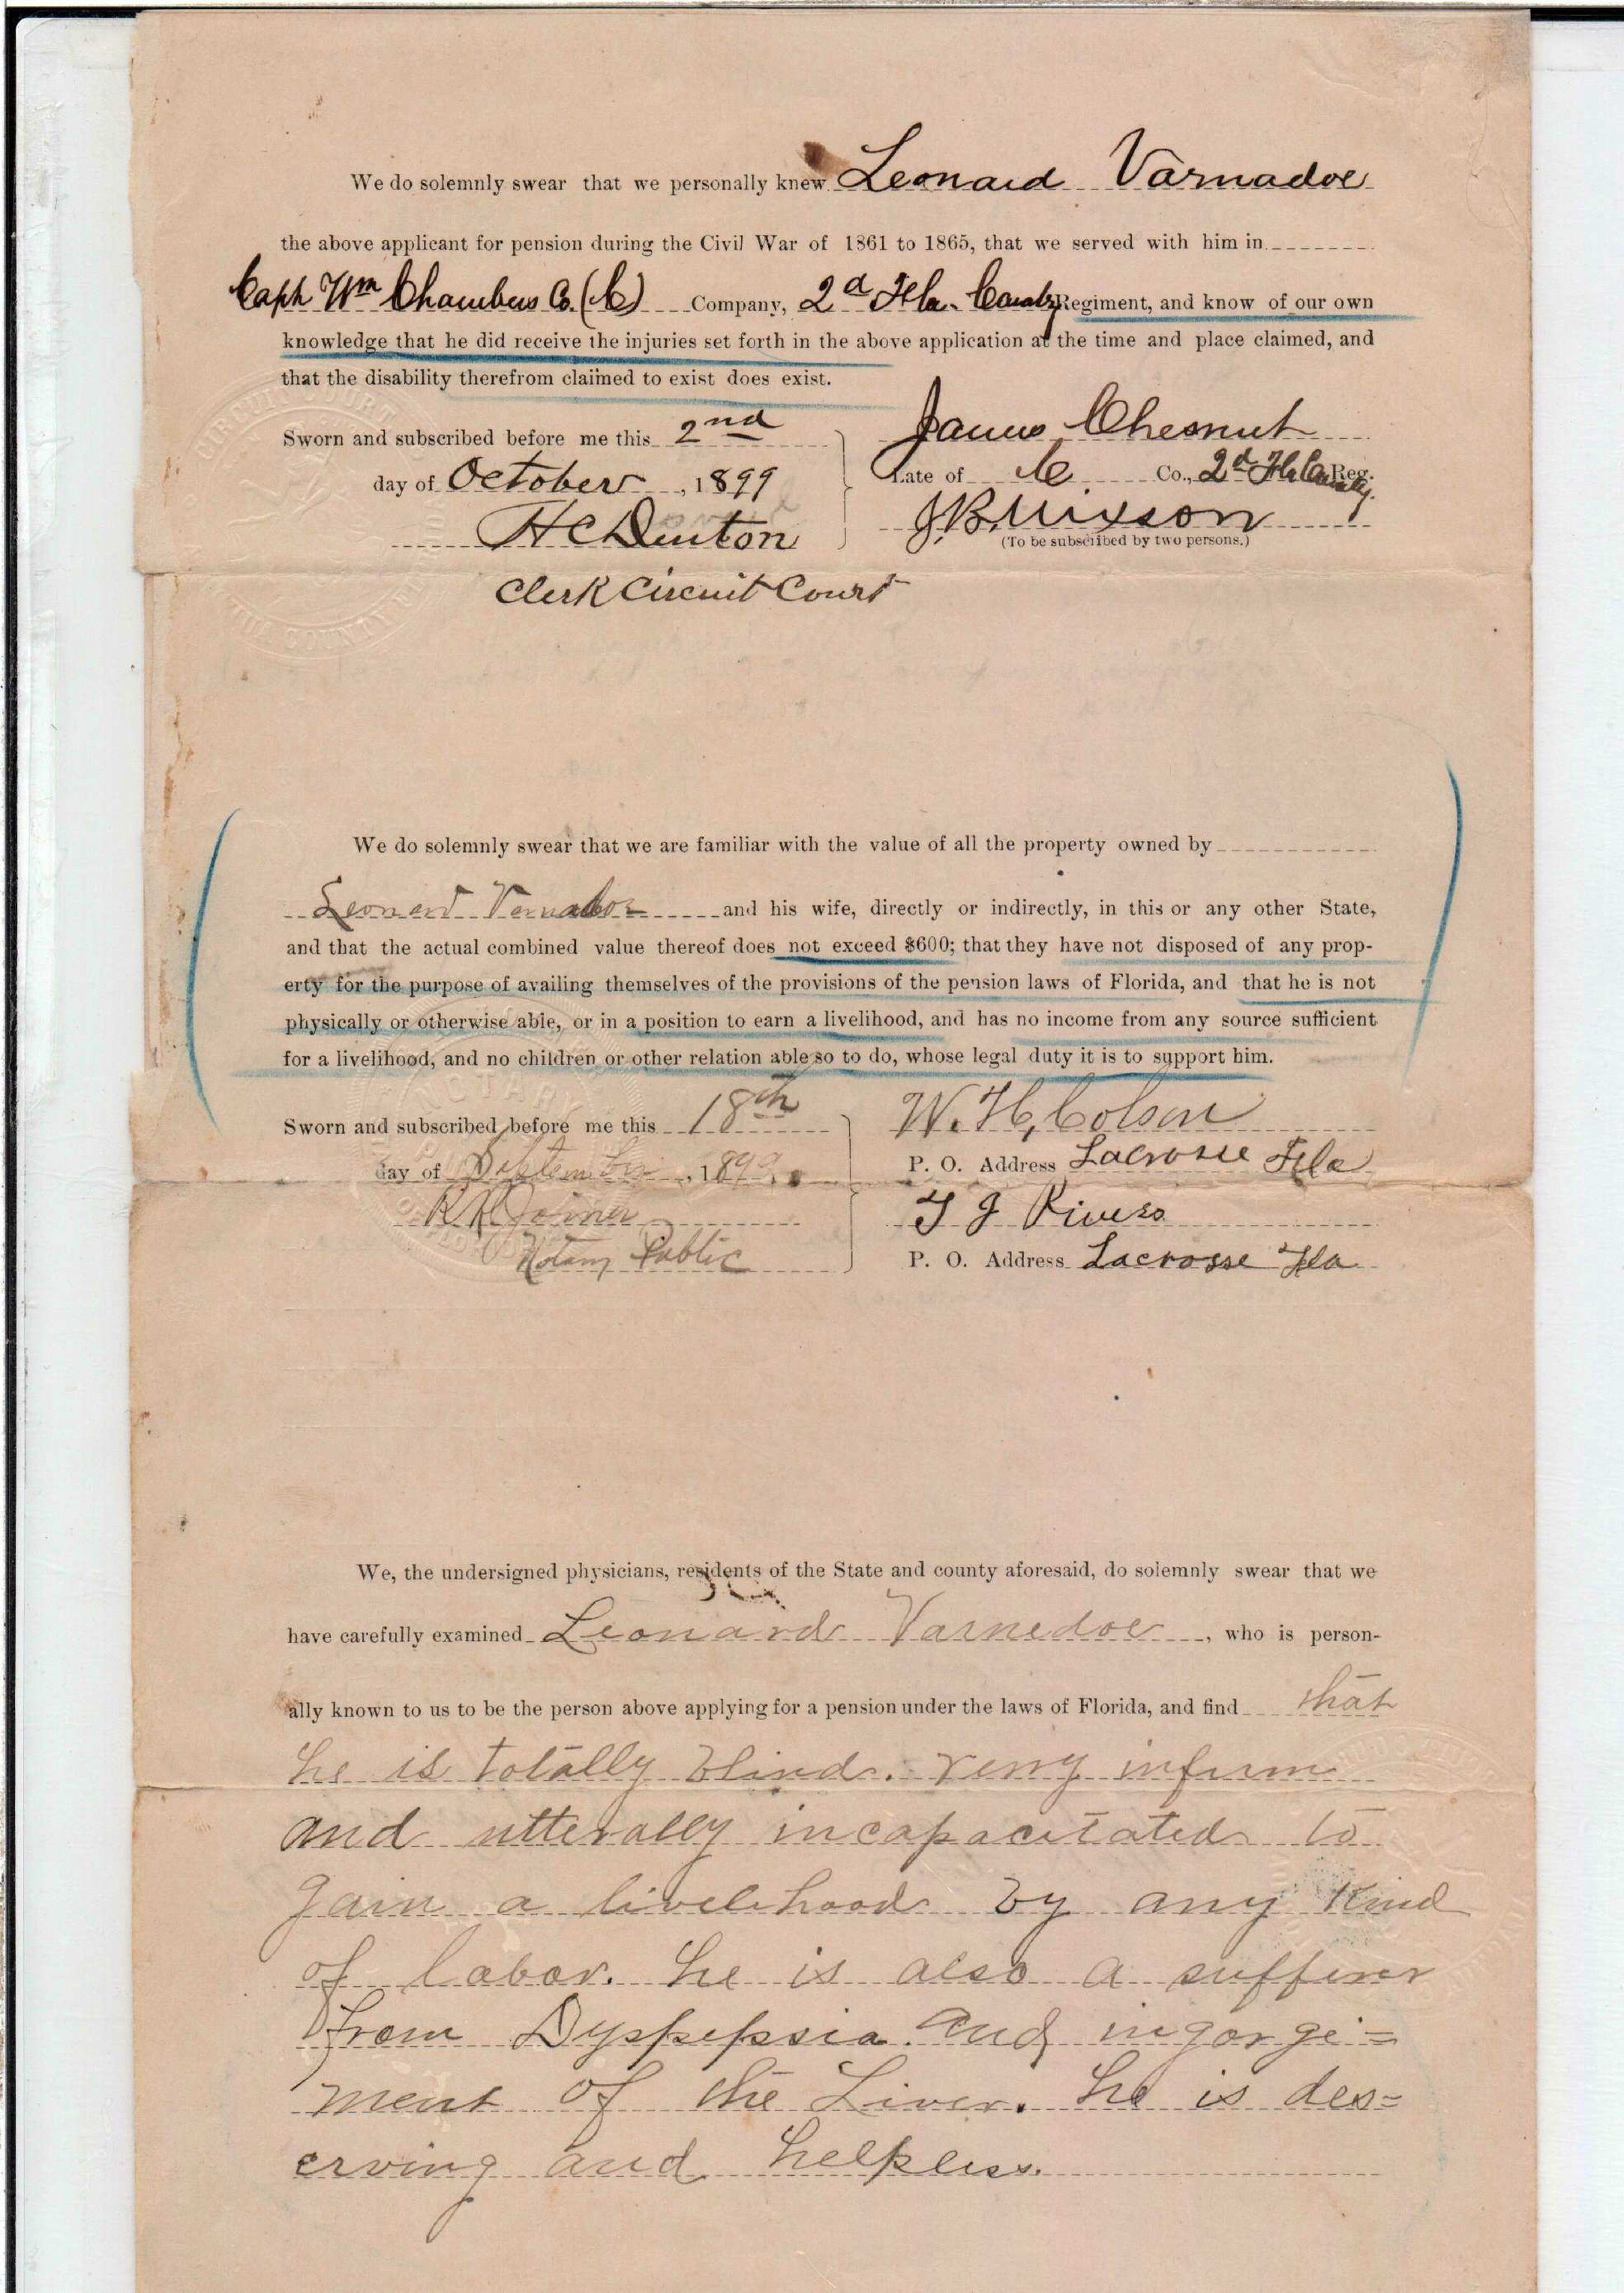 We do solemnly swear that we personally knew Leonard Varnadoe
the above applicant for pension during the Civil War of 1861 to 1865, that we served with him in
Capt Wm Chambers Co. (C) Company, 2d Fla. Cavalry Regiment, and know of our own
knowledge that he did receive the injuries set forth in the above application at the time and place claimed, and
that the disability therefrom claimed to exist does exist.
Sworn and subscribed before me this 2nd
day of October, 1899
H C Denton
Clerk Circuit Court
James Chesnut
Late of C. Co., 2d Fla Cavalry Reg.
J. B. Mixson
(To be subscribed by two persons.)
We do solemnly swear that we are familiar with the value of all the property owned by
Leonard Varnadoe and his wife, directly or indirectly, in this or any other State,
and that the actual combined value thereof does not exceed $600; that they have not disposed of any prop-
erty for the purpose of availing themselves of the provisions of the pension laws of Florida, and that he is not
physically or otherwise able, or in a position to earn a livelihood, and has no income from any source sufficient
for a livelihood, and no children or other relation able so to do, whose legal duty it is to support him.
Sworn and subscribed before me this 18th
day of September, 1899
Joiner
Notary Public
W. H. Colson
P. O. Address Lacrosse Fla
T J Rivers
P. O. Address Lacrosse Fla
We, the undersigned physicians, residents of the State and county aforesaid, do solemnly swear that we
have carefully examined Leonard Varnedoe, who is person-
ally known to us to be the person above applying for a pension under the laws of Florida, and find that
he is totally blind. very infirm
and utterally incapacitated to
gain a livelihood by any kind
of labor. he is also a sufferer
from Dyspepsia. and ingorge=
ment of the Liver. he is des=
erving and helpless.